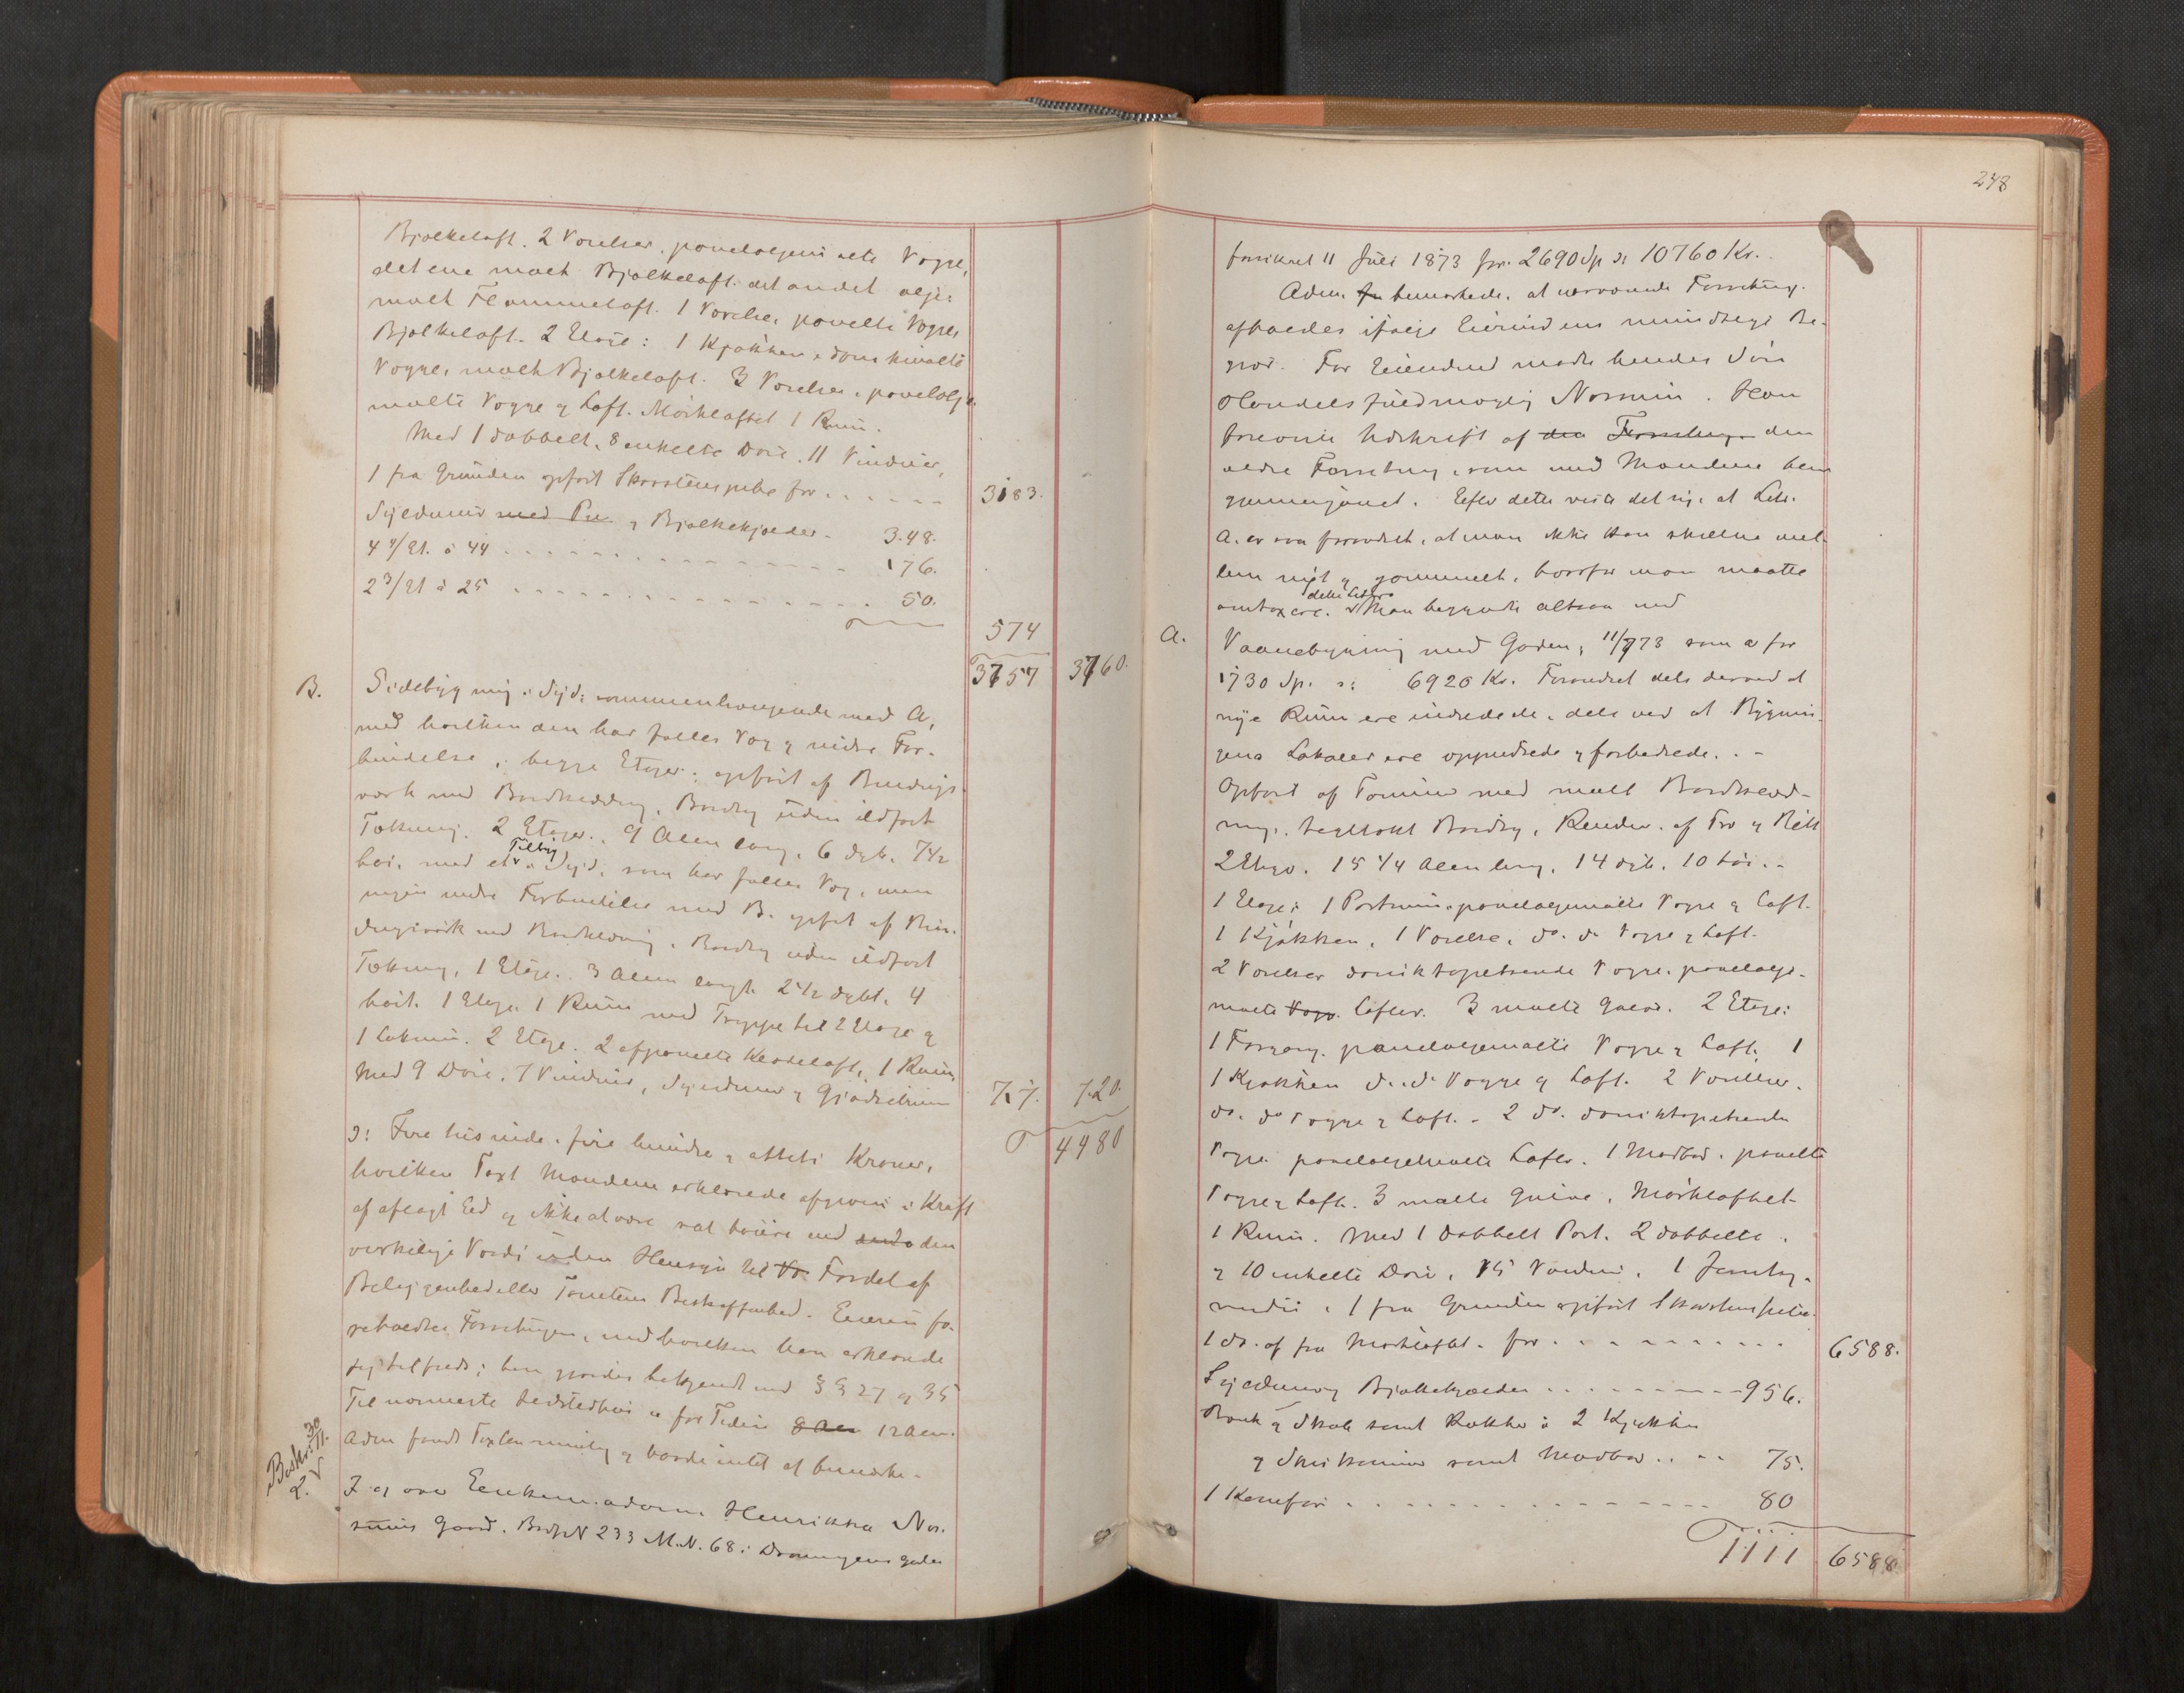 Bjælkeloft. 2 Værelser, paneloljem alte Vægge,
det ene malt Bjælkeloft. det andet olje-
malt Flammeloft. 1 Værelse, panelte Vægge,
Bjælkeloft. 2 Etage: 1 Kjøkken,
Vægge, malt Bjælkeloft. 3 Værelser, panelolje
malte Vægge og Loft. Mørkloftet 1 Rum.
Med 1 dobbelt, 8 enkelte Døre, 11 Vinduer,
1 fra Grunden opført Skorstenspibe for . . . . . . 3183.
Skjelrum med Pu og Bjælkekjælder - 348.
4 /Et. à 44 - - - - - - - 176.
2 3/Et à 25 - - - - - - - 50.
574
3757 3760.
B. Sidebygning i Syd, sammenhængende med A,
med hvilken den har fælles Væg og indre For-
bindelse, i begge Etager; opført af Bindings
værk med Bordklædning, Bordtag uden ildfast
Tækning. 2 Etager. 9 Alen lang, 6 dyb, 7 1/2
høi, med et Tilbyg i Syd, som har fælles Væg, men
ingen indre Forbindelse med B. opført af Bin-
dingsværk med Bordklædning, Bordtag uden ildfast
Tækning, 1 Etage. 3 Alen langt 2 1/2 dybt, 4
høit. 1 Etage. 1 Rum med Trappe til 2 Etage og
1 Lokum. 2 Etage. 2 afpanelte Klædeloft, 1 Rum,
Med 9 Døre, 7 Vinduer, Skjelrum og Gjødselrum 717. 720.
4480
ɔ: Fire tusinde, fire hundre og otteti Kroner,
hvilken Taxt Mændene erklærede afgiven i Kraft
af aflagt Ed og ikke at være sat høiere end den
virkelige Værdi uden Hensyn til Fordel af
Beliggenhed eller Tomtens Beskaffenhed. Eieren fo-
reholdtes Forretningen, med hvilken han erklærede
sig tilfreds; han gjordes bekjendt med §§ 27 og 35
Til nærmeste Ledstedhus er for Tiden 12 Alen.
Adm fandt Taxten rimelig og havde intet at bemærke.
Beskr. 30/11.
2.
J og over Enkemadame Henrikka Nor-
mins Gaard. Brdf N 233 M.N. 68 i Dronningens gade
248
forsikret 11 Juli 1873 for 2690 Sp ɔ: 10760 Kr.
Adm. bemærkede, at nærværende Forretning
afholdes ifølge Eierindens mundtlige Be-
gjær. For Eierinden mødte hendes Søn
Handelsfuldmægtig Normin. Han
foreviste Udskrift af den Forretning den
ældre Forretning, som med Mændene blev
gjennemgaaet. Efter dette viste det sig, at Litr.
A. er saa forandret, at man ikke kan skjelne mel-
lem nyt og gammelt, hvorfor man maatte
omtaxere dette Litr. Man begyndte altsaa med
A. Vaanebygning mod Gaden, 11/7 73 som a for
1730 Sp. ɔ: 6920 Kr. Forandret dels derved at
nye Rum ere indredede, dels ved at Bygnin-
gens Lokaler ere oppudsede og forbedrede. . -
Opført af Tømmer med malt Bordklæd-
ning, tegltækt Bordtag, Render af Træ og Blik
2 Etager. 15 1/4 Alen lang, 14 dyb, 10 høi. -
1 Etage: 1 Portrum, paneloljemalte Vægge og Loft.
1 Kjøkken, 1 Værelse, do. do Vægge og Loft.
2 Værelser Vægge, panelolje-
malte Vægge Lofter. 3 malte Gulve. 2 Etage:
1 Forgang, paneloljemalte Vægge og Loft, 1
1 Kjøkken do. do Vægge og Loft. 2 Værelser,
do. do Vægge og Loft. - 2 do.
Vægge paneloljemalte Lofter. 1 Madbod, panelte
Vægge og Loft. 3 malte Gulve, Mørkloftet
1 Rum. Med 1 dobbelt Port, 2 dobbelte
og 10 enkelte Døre, 15 Vinduer, 1 Jerntag-
vindu, 1 fra Grunden opført Skorstenspibe.
1 do. af fra Mørkloftet. for . . . . . . . . . 6588.
Skjelrum og Bjælkekjælder . . . . . . - - - 956.
Bænk og Skab samt Rækker i 2 Kjøkken
og Spiskammer samt Madbod . . - - 75.
1 Komfur . - . - - - - - - - - 80
1111 6588